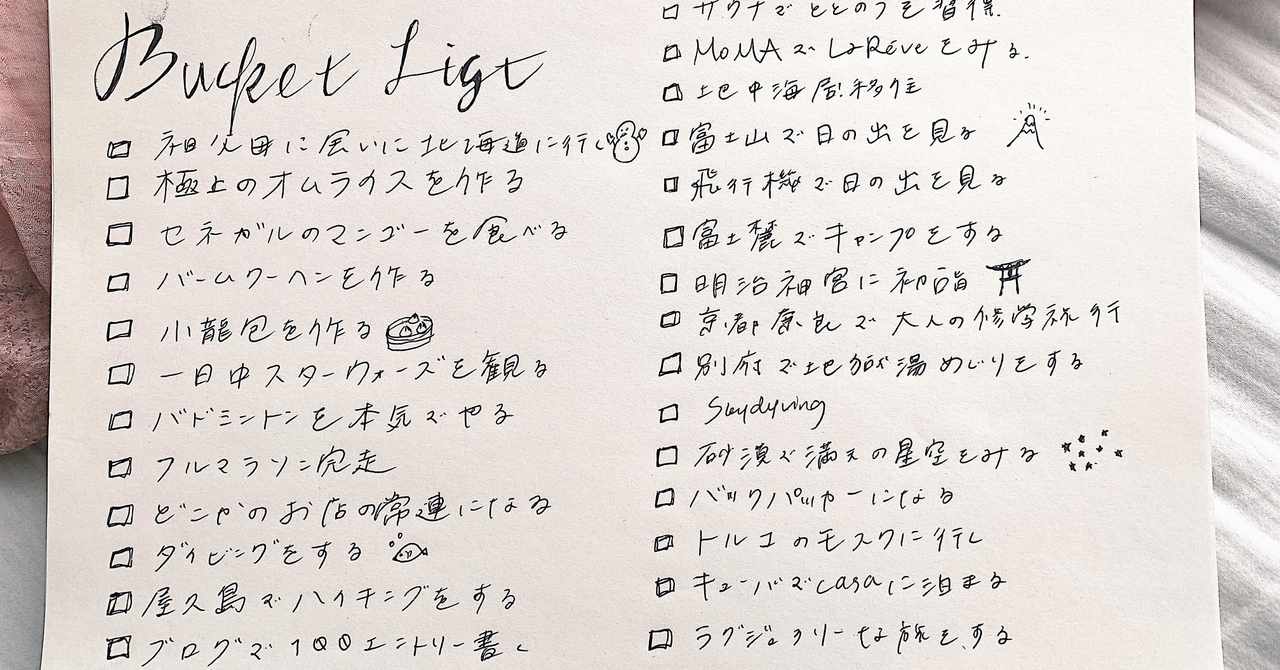 Bucket List
□ 祖父母に会いに北海道に行く
□ 極上のオムライスを作る
□ セネガルのマンゴーを食べる
□ バームクーヘンを作る
□ 小籠包を作る
□ 一日中スターウォーズを観る
□ バドミントンを本気でやる
□ フルマラソン完走
□ どこかのお店の常連になる
□ ダイビングをする
□ 屋久島でハイキングをする
□ ブログで100エントリー書く
□ サウナでととのうを習得.
□ MoMAでLaRêveをみる.
□ 地中海居移住
□ 富士山で日の出を見る
□ 飛行機で日の出を見る
□ 富士麓でキャンプをする
□ 明治神宮に初詣
□ 京都奈良で大人の修学旅行
□ 別府で地獄湯めぐりをする
□ Skydyving
□ 砂漠で満天の星空をみる
□ バックパッカーになる
□ トルコのモスクに行く
□ キューバでcasaに泊まる
□ ラグジュアリーな旅をする